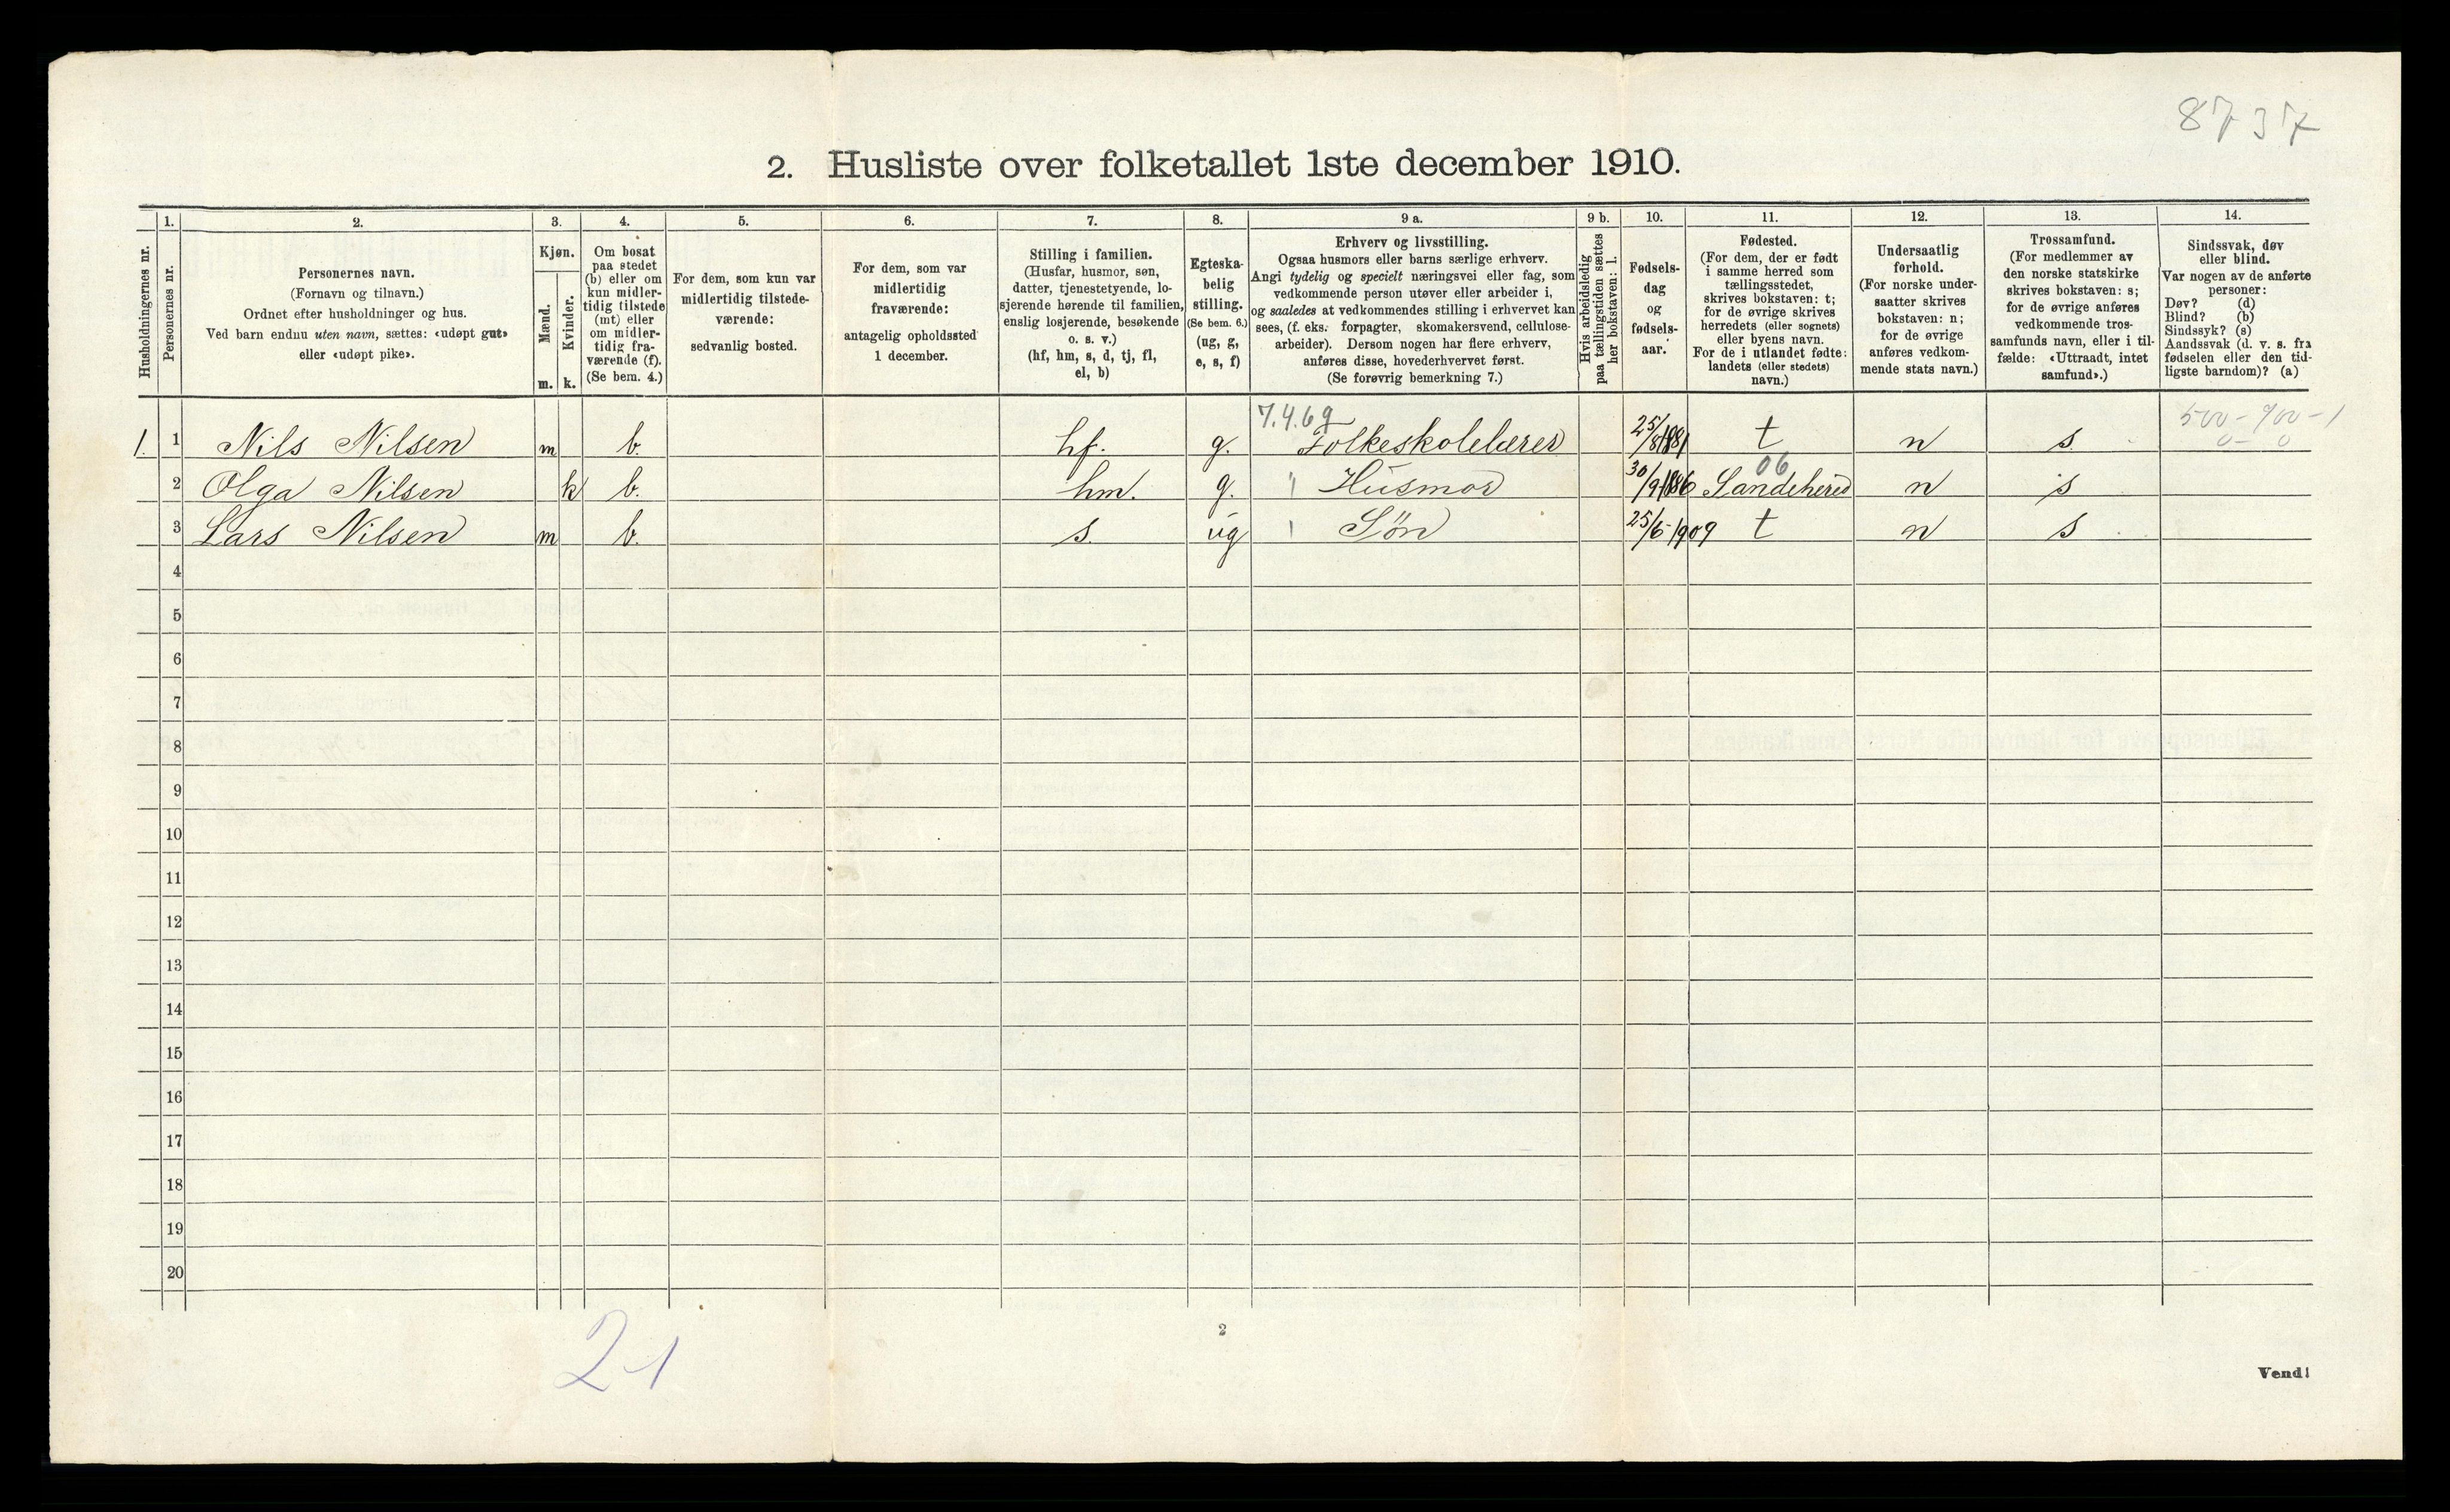 8737
2. Husliste over folketallet 1ste december 1910.
Husholdningernes nr.
1.
Personernes nr.
2.
Personernes navn.
(Fornavn og tilnavn.)
Ordnet efter husholdninger og hus.
Ved barn endnu uten navn, sættes: «udøpt gut»
eller «udøpt pike».
3.
Kjøn.
Mænd.
Kvinder.
m. k.
4.
Om bosat
paa stedet
(b) eller om
kun midler-
tidig tilstede
(mt) eller
om midler-
tidig fra-
værende (f).
(Se bem. 4.)
5.
For dem, som kun var
midlertidig tilstede-
værende:
sedvanlig bosted.
6.
For dem, som var
midlertidig
fraværende:
antagelig opholdssted
1 december.
7.
Stilling i familien.
(Husfar, husmor, søn,
datter, tjenestetyende, lo-
sjerende hørende til familien,
enslig losjerende, besøkende
o. s. v.)
(hf, hm, s, d, tj, fl,
el, b)
8.
Egteska-
belig
stilling.
(Se bem. 6.)
(ug, g,
e, s, f)
9 a.
Erhverv og livsstilling.
Ogsaa husmors eller barns særlige erhverv.
Angi tydelig og specielt næringsvei eller fag, som
vedkommende person utøver eller arbeider i,
og saaledes at vedkommendes stilling i erhvervet kan
sees, (f. eks. forpagter, skomakersvend, cellulose-
arbeider). Dersom nogen har flere erhverv,
anføres disse, hovederhvervet først.
(Se forøvrig bemerkning 7.)
9 b.
Hvis arbeidsledig
paa tællingstiden sættes
her bokstaven: l.
10.
Fødsels-
dag
og
fødsels-
aar.
11.
Fødested.
(For dem, der er født
i samme herred som
tællingsstedet,
skrives bokstaven: t;
for de øvrige skrives
herredets (eller sognets)
eller byens navn.
For de i utlandet fødte:
landets (eller stedets)
navn.)
12.
Undersaatlig
forhold.
(For norske under-
saatter skrives
bokstaven: n;
for de øvrige
anføres vedkom-
mende stats navn.)
13.
Trossamfund.
(For medlemmer av
den norske statskirke
skrives bokstaven: s;
for de øvrige anføres
vedkommende tros-
samfunds navn, eller i til-
fælde: «Uttraadt, intet
samfund».)
14.
Sindssvak, døv
eller blind.
Var nogen av de anførte
personer:
Døv? (d)
Blind? (b)
Sindssyk? (s)
Aandssvak (d. v. s. fra
fødselen eller den tid-
ligste barndom)? (a)
7.4.69 500 - 700 - 1
1. 1 Nils Nilsen m b. hf. g. Folkeskolelærer 25/8 1881 t n s. 0 - 0
06
2 Olga Nilsen k b. hm. g. " Husmor 30/9 1886 Sandehered n s
3 Lars Nilsen m b. s. ug Søn 25/6 1909 t n s
4
5
6
7
8
9
10
11
12
13
14
15
16
17
18
19
20
2-1
2
Vend!